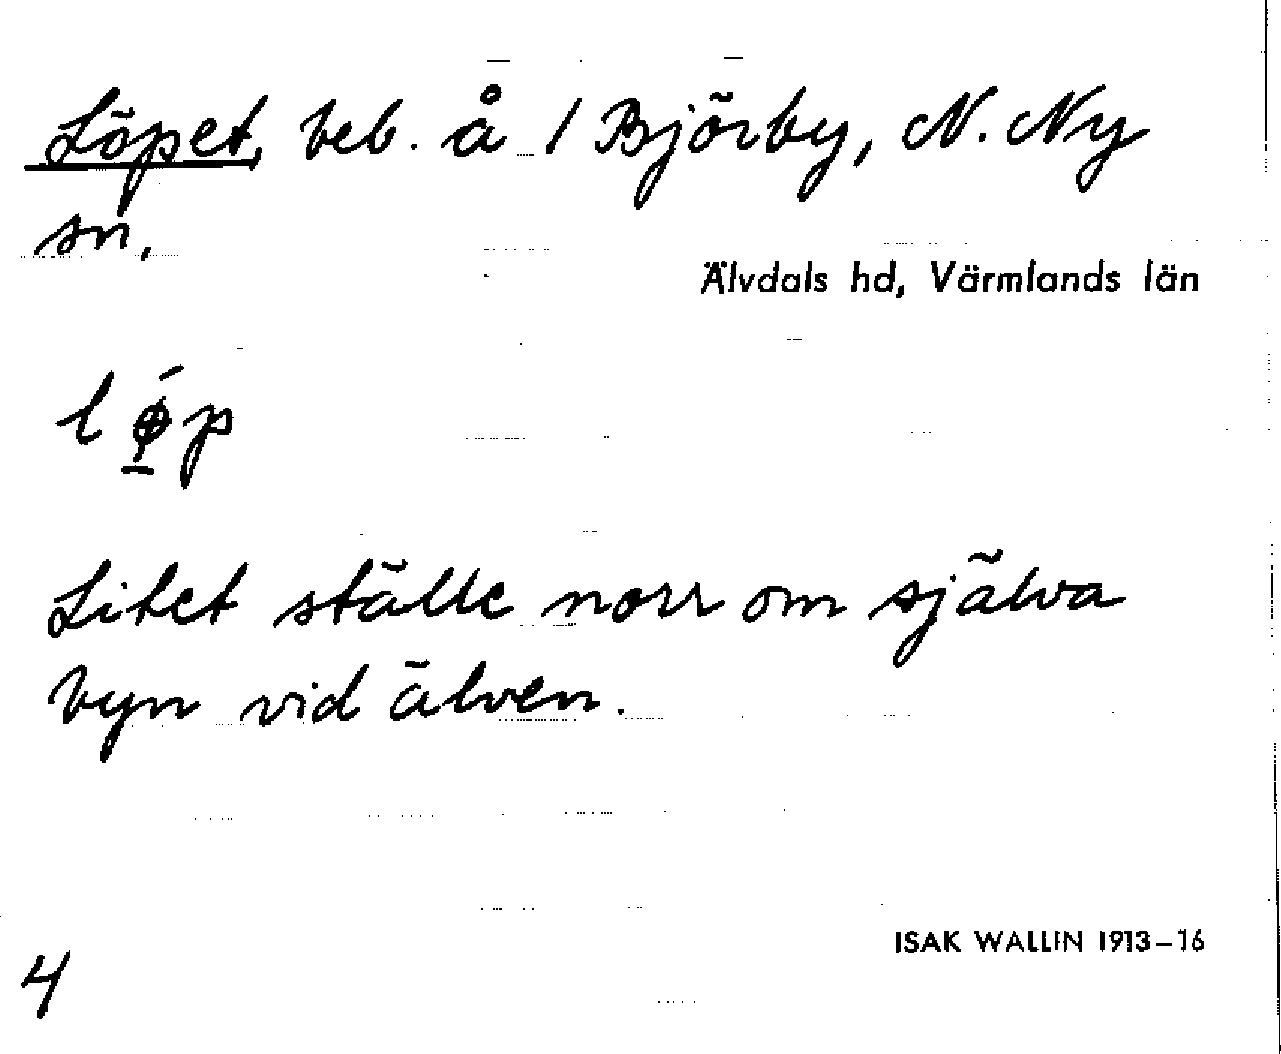 Löpet, beb. å 1 Björby, N. Ny
sn.
Älvdals hd, Värmlands län
Litet ställe norr om själva
byn vid älven.
ISAK WALLIN 1913–16
4